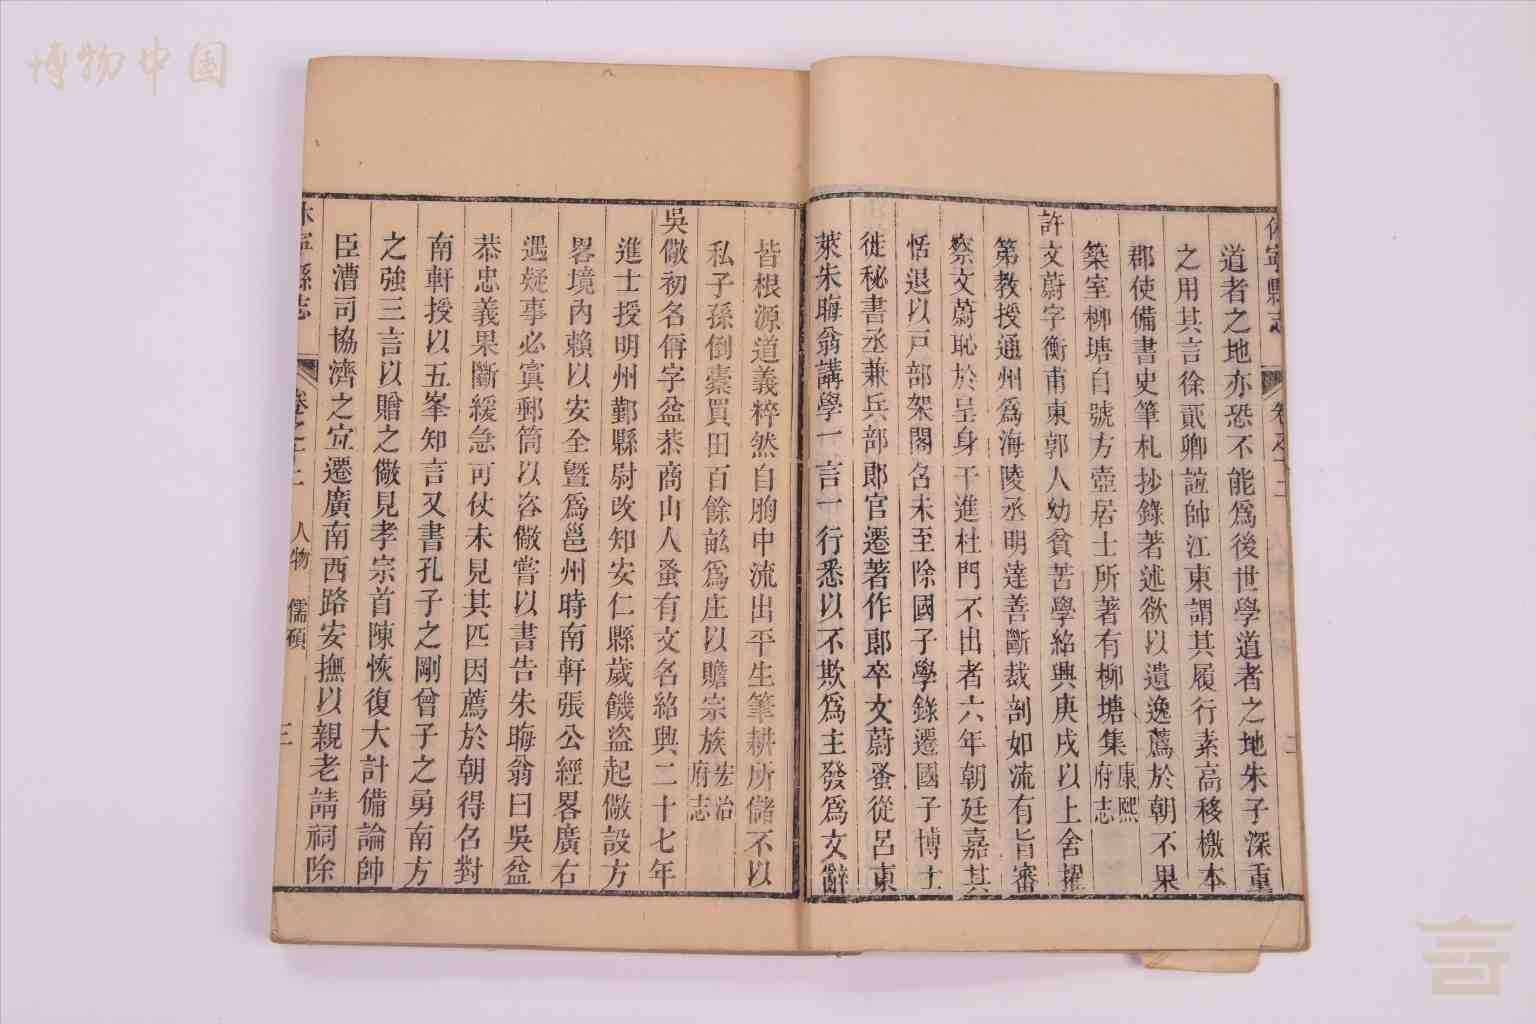 博物中国
休寧縣志
卷之十二
二
道者之地亦恐不能爲後世學道者之地朱子深重
之用其言徐貳卿誼帥江東謂其履行素高移檄本
郡使備書史筆札抄錄著述欲以遺逸薦於朝不果
築室柳塘自號方壺居士所著有柳塘集康熙府志
許文蔚字衡甫東郭人幼貧苦學紹興庚戌以上舍擢
第教授通州爲海陵丞明達善斷裁剖如流有旨審
察文蔚恥於呈身干進杜門不出者六年朝廷嘉其
恬退以戸部架閣召未至除國子學錄遷國子博士
徙秘書丞兼兵部郎官遷著作郎卒文蔚蚤從呂東
萊朱晦翁講學一言一行悉以不欺爲主發爲文辭
皆根源道義粹然自胸中流出平生筆耕所儲不以
私子孫倒橐買田百餘畝爲庄以贍宗族宏治府志
吳儆初名偁字益恭商山人蚤有文名紹興二十七年
進士授明州鄞縣尉改知安仁縣歲饑盜起儆設方
畧境內賴以安全曁爲邕州時南軒張公經畧廣右
遇疑事必寘郵筒以咨儆嘗以書告朱晦翁曰吳益
恭忠義果斷緩急可仗未見其匹因薦於朝得召對
南軒授以五峯知言又書孔子之剛曾子之勇南方
之強三言以贈之儆見孝宗首陳恢復大計備論帥
臣漕司協濟之宜遷廣南西路安撫以親老請祠除
休寧縣志
卷之十二
人物
儒碩
三